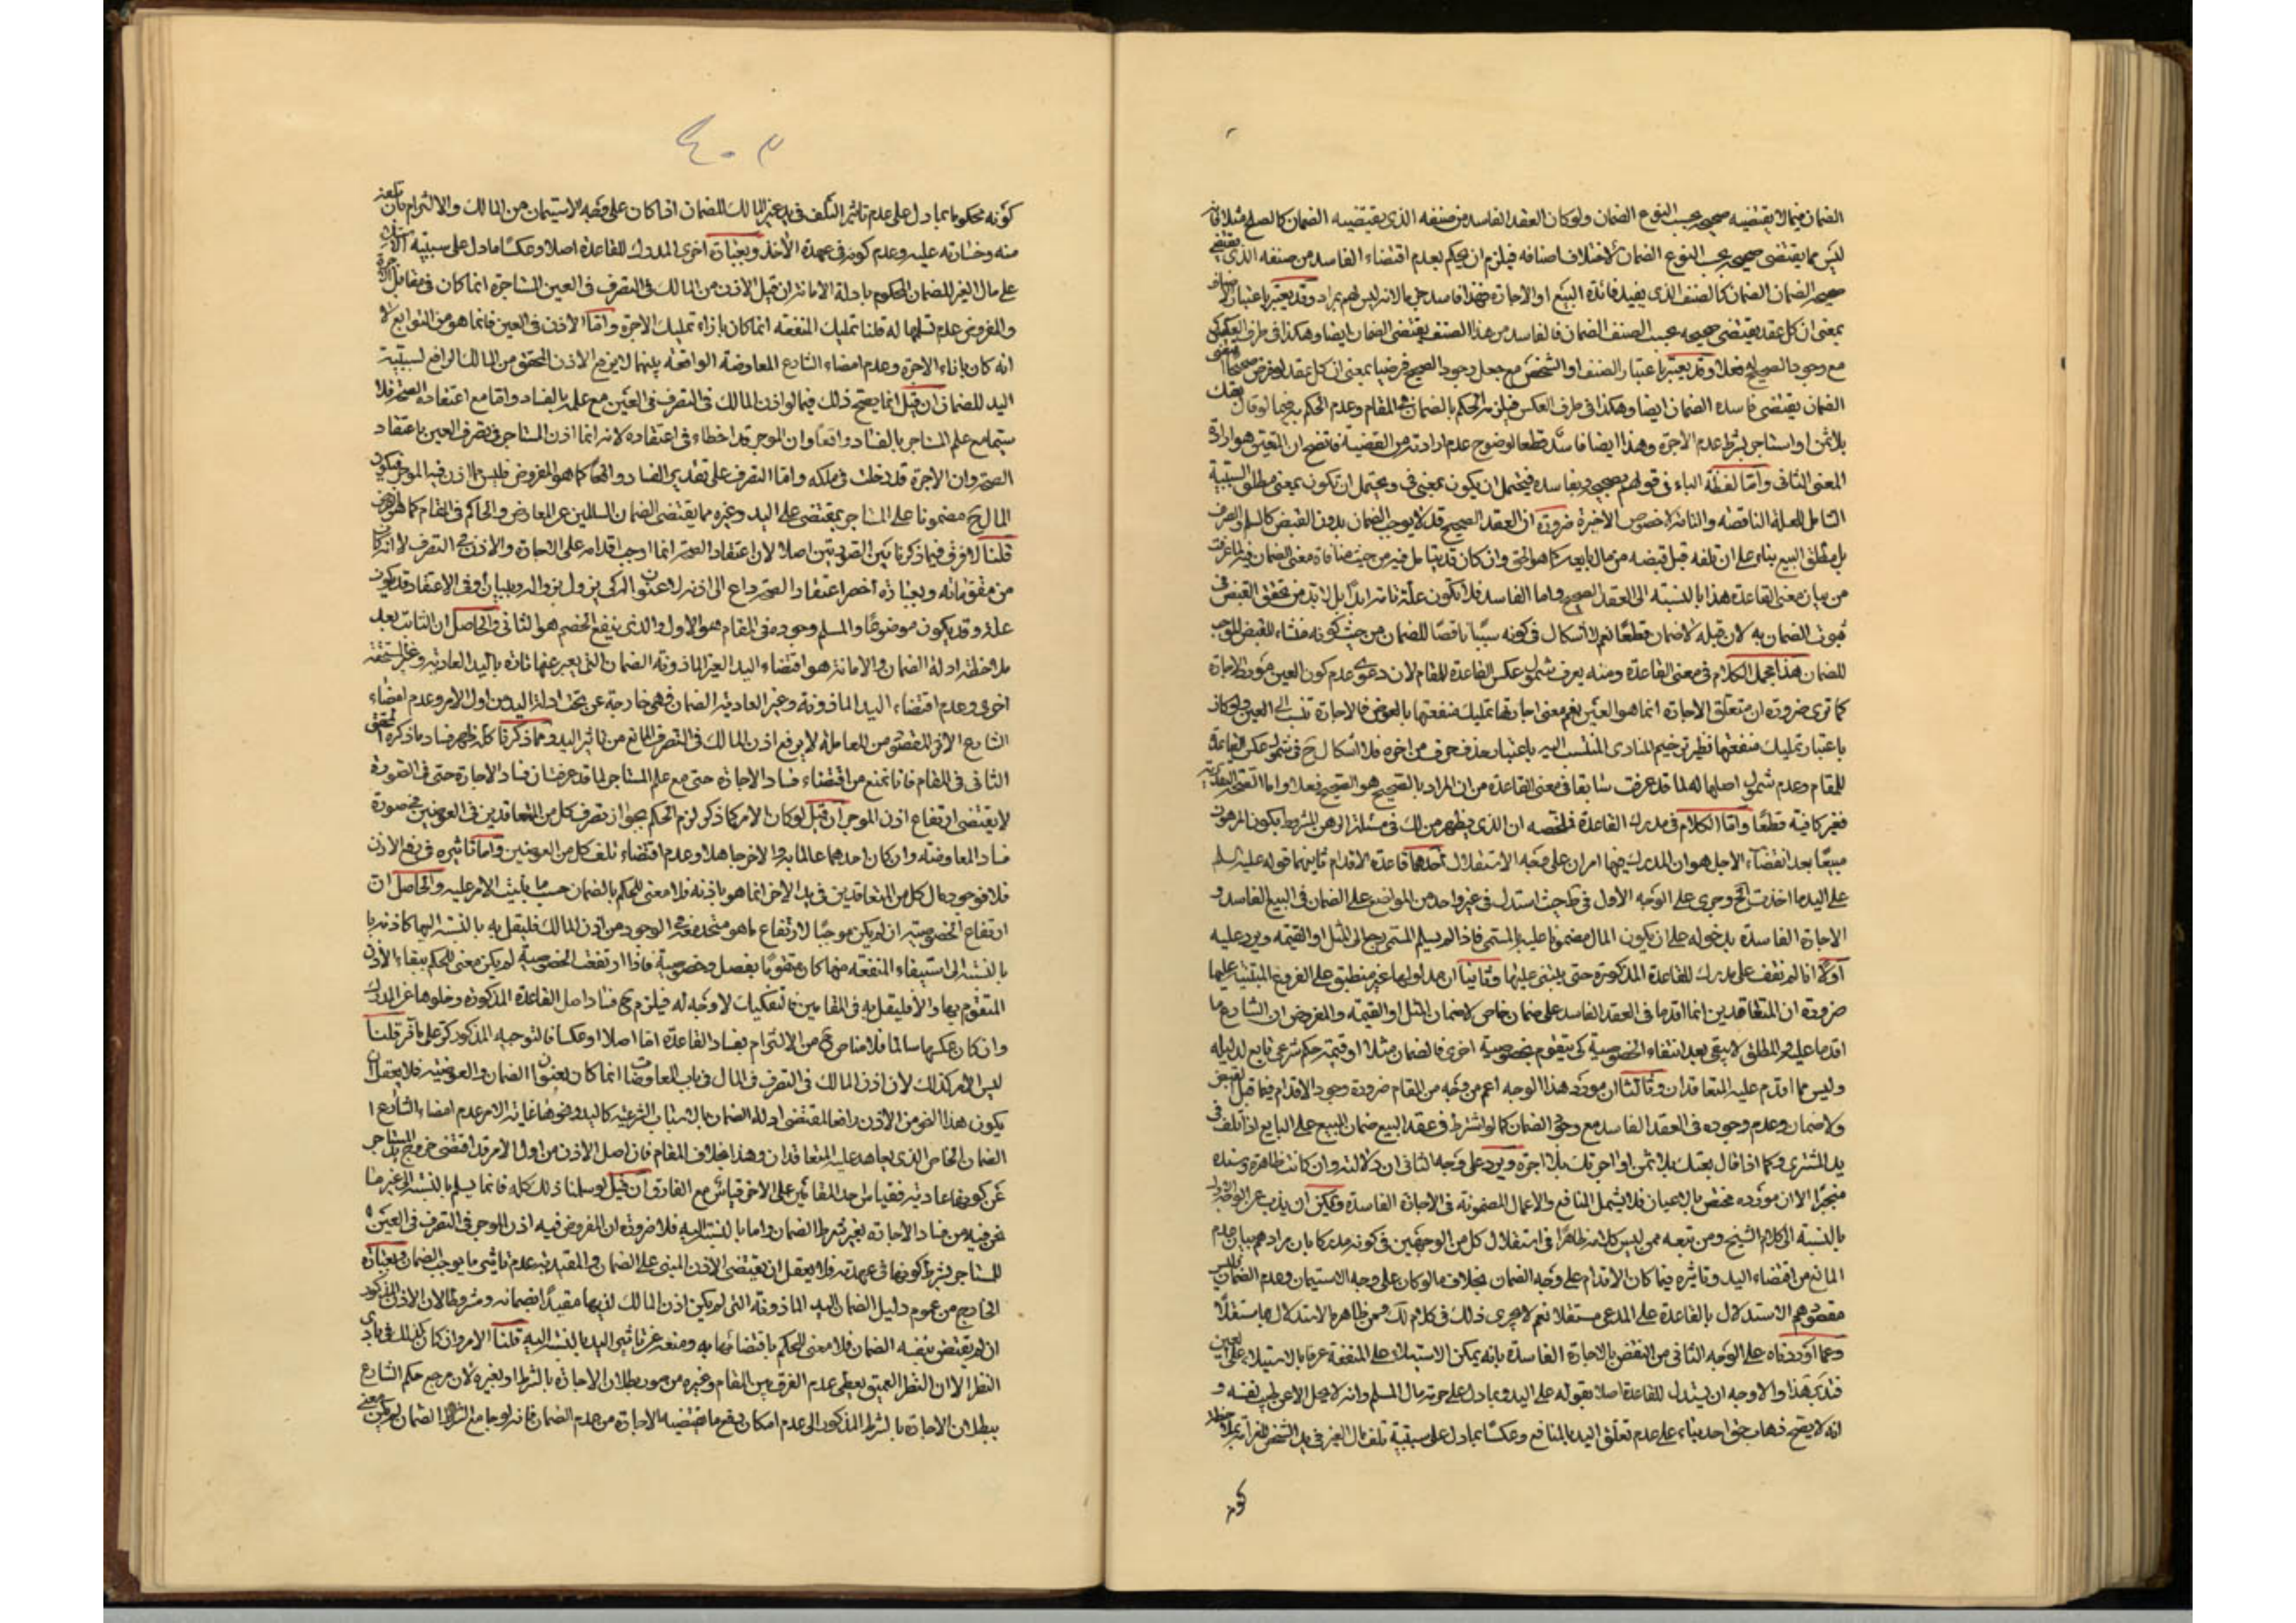 الضمان فيما لا يقتضيه صحيحه بحسب النوع الضمان ولو كان العقد الفاسد من صنفه الذى يقتضيه الضمان كالصلح مثلا فانه
ليس مما يقتضى صحيحه بحسب النوع الضمان لاختلاف اصنافه فيلزم ان يحكم بعدم اقتضاء الفاسد من صنفه الذى يقتضى
صحيحه الضمان الضمان كالصنف الذى يفيد فائدة البيع او الاجارة فهذا فاسد جدا لانه ليس لهم مراد وقد يعتبر باعتبار
بمعنى ان كل عقد يقتضى صحيحه بحسب الصنف الضمان فالفاسد من هذا الصنف يقتضى الضمان ايضا وهكذا فى طرف العكس
مع وجود الصحيح له فعلا وقد يعتبر باعتبار الصنف او الشخص مع جعل وجود الصحيح فرضيا بمعنى ان كل عقد لو فرض صحيحا
الضمان يقتضى فاسده الضمان ايضا وهكذا فى طرف العكس فيلزم الحكم بالضمان فى المقام وعدم الحكم به فيما لو قال بعتك
بلا ثمن او استاجر بشرط عدم الاجرة وهذا ايضا فاسد قطعا لوضوح عدم ارادته من القضية فاتضح ان المتعين هو ارادة
المعنى الثانى واما لفظة الباء فى قولهم بصحيحه وبفاسده فيحتمل ان يكون بمعنى فى ويحتمل ان تكون بمعنى مطلق السببية
الشامل للعلة الناقصة والتامة لا خصوص الأخيرة ضرورة ان العقد الصحيح قد لا يوجب الضمان بدون القبض كالسلم والصرف
بل مطلق البيع بناء على ان تلفه قبل قبضه من مال بايعه كما هو الحق وان كان قد يتامل فيه من حيث منافاة معنى الضمان فيه لما عرفت
من بيان معنى القاعدة هذا بالنسبة الى العقد الصحيح واما الفاسد فلا تكون علة تامة ابدا بل لا بد من تحقق القبض فى
ثبوت الضمان به لان قبله لا ضمان قطعا نعم لا اشكال فى كونه سببا ناقصا للضمان من حيث كونه منشاء للقبض الموجب
للضمان هذا مجمل الكلام فى معنى القاعدة ومنه يعرف شمول عكس القاعدة للمقام لان دعوى عدم كون العين مورد الاجارة
كما ترى ضرورة ان متعلق الاجارة انما هو العين نعم معنى اجارتها تمليك منفعتها بالعوض فالاجارة تنسب الى العين ولو كان
باعتبار تمليك منفعتها نظير ترخيم المنادى المنتسب اليه باعتبار حذف حرف من اخره فلا اشكال ح فى شمول عكس القاعدة
للمقام وعدم شمول اصلها له لما قد عرفت سابقا فى معنى القاعدة من ان المراد بالصحيح هو الصحيح فعلا واما الصحة التقديرية
فغير كافية قطعا واما الكلام فى مدرك القاعدة فملخصه ان الذى يظهر من لك فى مسئلة الرهن المشروط بكون المرهون
مبيعا بعد انقضاء الاجل هو ان المدرك فيها امران على وجه الاستقلال احدهما قاعدة الاقدام ثانيهما قوله عليه السلم
على اليد ما اخذت الخ وجرى على الوجه الأول فى ط حيث استدل فى غير واحد من المواضع على الضمان فى البيع الفاسد و
الاجارة الفاسدة بدخوله على ان يكون المال مضمونا عليه بالمسمى فاذا لم يسلم المسمى رجع الى المثل او القيمة ويرد عليه
أولا انا لم نقف على مدرك للقاعدة المذكورة حتى يبتنى عليها وثانيا ان مدلولها غير منطبق على الفروع المبتنية عليها
ضرورة ان المتعاقدين انما اقدما فى العقد الفاسد على ضمان خاص لا ضمان المثل او القيمة والمفروض ان الشارع ما
اقدما عليه والمطلق لا يبقى بعد انتفاء الخصوصية كى يتقوم بخصوصية اخرى فالضمان مثلا او قيمة حكم شرعى تابع لدليله
وليس مما اقدم عليه المتعاقدان وثالثا ان مورد هذا الوجه اعم من وجه من المقام ضرورة وجود الاقدام فيما قبل القبض
ولا ضمان وعدم وجوده فى العقد الفاسد مع وجود الضمان كما لو اشترط فى عقد البيع ضمان المبيع على البايع اذا تلف فى
يد المشترى وكما اذا قال بعتك بلا ثمن او اجرتك بلا اجرة ويرد على وجه الثانى ان دلالته وان كانت ظاهرة وسنده
منجبرا الا ان مورده مختص بالاعيان فلا يشمل المنافع والاعمال المضمونة فى الاجارة الفاسدة ويمكن ان يذب عن الوجه الأول
بالنسبة الى كلام الشيخ ومن تبعه ممن ليس كلامه ظاهرا فى استقلال كل من الوجهين فى كونه مدركا بان مرادهم بيان عدم
المانع من اقتضاء اليد وتاثيره فيما كان الاقدام على وجه الضمان بخلاف ما لو كان على وجه الاستيمان وعدم الضمان فليس
مقصودهم الاستدلال بالقاعدة على المدعى مستقلا نعم لا يجرى ذلك فى كلام لك وممن ظاهره الاستدلال بها مستقلا
وعما اوردناه على الوجه الثانى من النقض بالاجارة الفاسدة بانه يمكن الاستيلاء على المنفعة عرفا بالاستيلاء على العين
فتدبر هذا والاوجه ان يستدل للقاعدة اصلا بقوله على اليد وبما دل على حرمة مال المسلم وانه لا يحل الا عن طيب نفسه و
انه لا يصح ذهاب حق احد بناء على عدم تعلق اليد بالمنافع وعكسا بما دل على سببية تلف مال الغير فى يد الشخص للغرامة بملاحظة
كونه
٤٠٣
كونه محكوما بما دل على عدم تاثير التلف فى يد غير المالك للضمان اذا كان على وجه الاستيمان من المالك والالتزام بان تلفه
منه وخسارته عليه وعدم كونه فى عهدة الأخذ وبعبارة اخرى المدرك للقاعدة اصلا وعكسا ما دل على سببية الاستيلاء
على مال الغير للضمان المحكوم بادلة الامانة ان قيل الاذن من المالك فى التصرف فى العين المستاجرة انما كان فى مقابل الاجرة
والمفروض عدم تسلمها له قلنا تمليك المنفعة انما كان بازاء تمليك الاجرة واما الاذن فى العين فانما هو من التوابع لا
انه كان بازاء الاجرة وعدم امضاء الشارع المعاوضة الواقعة بينهما لا يرفع الاذن المحقق من المالك الرافع لسببية
اليد للضمان ان قيل انما يصح ذلك فيما لو اذن المالك فى التصرف فى العين مع علمه بالفساد واما مع اعتقاده الصحة فلا
سيما مع علم المستاجر بالفساد واقعا وان الموجر قد اخطاء فى اعتقاده لانه انما اذن المستاجر فى تصرف العين باعتقاد
الصحة وان الاجرة قد دخلت فى ملكه واما التصرف على تقدير الفساد واقعا كما هو المفروض فليس مما اذن فيه الموجر فيكون
المال ح مضمونا على المستاجر بمقتضى على اليد وغيره مما يقتضى الضمان السالمين عن المعارض والحاكم فى المقام كما هو المفروض
قلنا لا فرق فيما ذكرنا بين الصورتين اصلا لان اعتقاد الصحة انما اوجب اقدامه على الاجارة والاذن فى التصرف لا انه كان
من مقوماته وبعبارة أخصر اعتقاد الصحة داع الى اذنه لا عنوان له كى يزول بزواله وببيان اوفى الاعتقاد قد يكون
علة وقد يكون موضوعا والمسلم وجوده فى المقام هو الاول والذى ينفع الخصم هو الثانى والحاصل ان الثابت بعد
ملاحظة ادلة الضمان والامانة هو اقتضاء اليد الغير الماذونة الضمان التى يعبر عنها تارة باليد العادية وغير المستحقة
اخرى وعدم اقتضاء اليد الماذونة وغير العادية الضمان فهى خارجة عن تحت ادلة اليد من اول الامر وعدم امضاء
الشارع الاثر المقصود من المعاملة لا يرفع اذن المالك فى التصرف المانع من تاثير اليد ومما ذكرنا كله ظهر فساد ما ذكره المحقق
الثانى فى المقام فانا نمنع من اقتضاء فساد الاجارة حتى مع علم المستاجر لما قد عرفت ان فساد الاجارة حتى فى الصورة
لا يقتضى ارتفاع اذن الموجر ان قيل لو كان الامر كما ذكر لزم الحكم بجواز تصرف كل من المتعاقدين فى العوضين فى صورة
فساد المعاوضة وان كان احدهما عالما به والاخر جاهلا وعدم اقتضاء تلف كل من العوضين واما تاثيره فى رفع الاذن
فلا فوجود مال كل من المتعاقدين فى يد الاخر انما هو باذنه فلا معنى للحكم بالضمان حسب ما بنيت الامر عليه والحاصل ان
ارتفاع الخصوصية ان لم يكن موجبا لارتفاع ما هو متحد معه فى الوجود من اذن المالك فليقل به بالنسبة اليهما كاذنه با
بالنسبة الى استيفاء المنفعة منهما كان متقوما بفصل وخصوصية فاذا ارتفعت الخصوصية لم يكن معنى للحكم ببقاء الأذن
المتقوم بها والا فليقل به فى المقامين فالتفكيك لا وجه له فيلزم ح فساد اصل القاعدة المذكورة وخلوها عن المدرك
وان كان عكسها سالما فلا مناص ح من الالتزام بفساد القاعدة اما اصلا او عكسا فالتوجيه المذكور كر على ما فر قلنا
ليس الامر كذلك لان اذن المالك فى التصرف فى المال فى باب المعاوضات انما كان بعنوان الضمان والعوضية فلا يعقل ان
يكون هذا النحو من الاذن رافعا لمقتضى ادلة الضمان بالاسباب الشرعية كاليد ونحوها غاية الامر عدم امضاء الشارع ا
الضمان الخاص الذى يعاهد عليه المتعاقدان وهذا بخلاف المقام فان اصل الاذن من اول الامر قد اقتضى خروج يد المستاجر
عن كونها عادية فقياس احد المقامين على الاخر قياس مع الفارق ان قيل لو سلمنا ذلك كله فانما يسلم بالنسبة الى غير ما
نحن فيه من فساد الأجارة بغير شرط الضمان واما بالنسبة اليه فلا ضرورة ان المفروض فيه اذن الموجر فى التصرف فى العين
للمستاجر بشرط كونها فى عهدته فلا يعقل ان يقتضى الاذن المبنى على الضمان والمقيد به عدم تاثير ما يوجب الضمان وبعبارة
الخارج من عموم دليل الضمان اليد الماذونة التى لم يكن اذن المالك فيها مقيدا بضمانه ومشروطا لان الاذن المذكور
ان لم يقتض بنفسه الضمان فلا معنى للحكم باقتضائها به ومنعه عن تاثير اليد بالنسبة اليه قلنا الامر وان كان كذلك فى بادى
النظر الا ان النظر العميق يعطى عدم الفرق بين المقام وغيره من صور بطلان الاجارة بالشرط او بغيره لان مرجع حكم الشارع
ببطلان الاجارة بالشرط المذكور الى عدم امكان رفع ما تقتضيه الاجارة من عدم الضمان فانه لو جامع الشرط الضمان لم يكن معنى